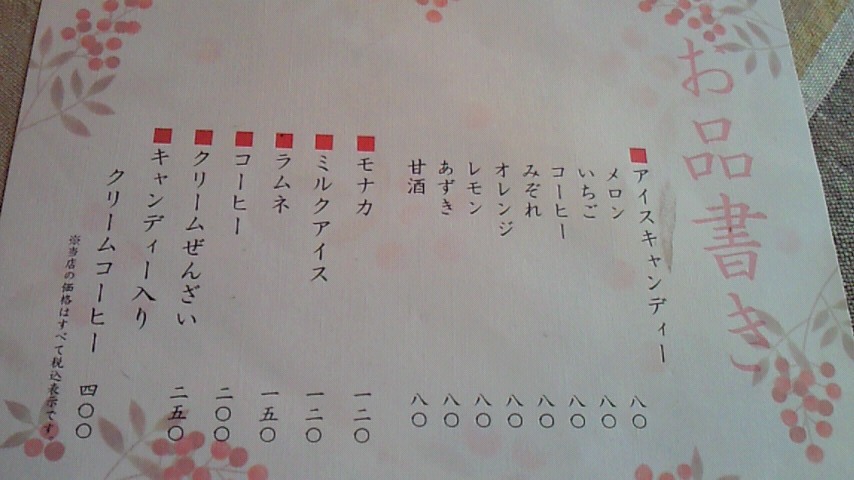 お品書き
■アイスキャンディー
メロン 八〇
いちご 八〇
コーヒー 八〇
みぞれ 八〇
オレンジ 八〇
レモン 八〇
あずき 八〇
甘酒 八〇
■モナカ 一二〇
■ミルクアイス 一二〇
■ラムネ 一五〇
■コーヒー 二〇〇
■クリームぜんざい 二五〇
■キャンディー入り
クリームコーヒー 四〇〇
※当店の価格はすべて税込表示です。